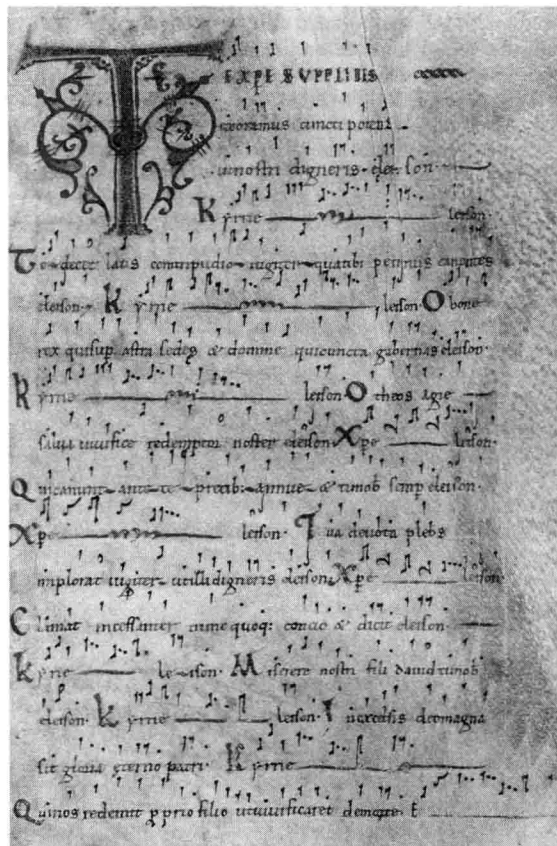 TE XPE SUPPLICES
exoramus cunctipotens
ut nostri digneris eleison.
Kyrie leison.
Te decet laus cum tripudio iugiter quatibi petimus canentes
eleison. Kyrie leison. O bone
rex qui sup astra sedes & domine qui cuncta gubernas eleison.
Kyrie leison. O theos agie
salua uiuifice redemptor noster eleison. Xpe leison.
Qui canunt ante te precib: annue & tu nob semp eleison.
Xpe leison. Tua deuota plebs
implorat iugiter ut illi digneris eleison. Xpe leison.
Clamat incessanter nunc quoq: concio & dicit eleison.
Kyrie leison. Miserere nostri fili dauid tu nob
eleison. Kyrie leison. In excelsis deo magna
sit gloria eterno patri. Kyrie
Qui nos redemit pprio filio ut uiuificaret de morte. E